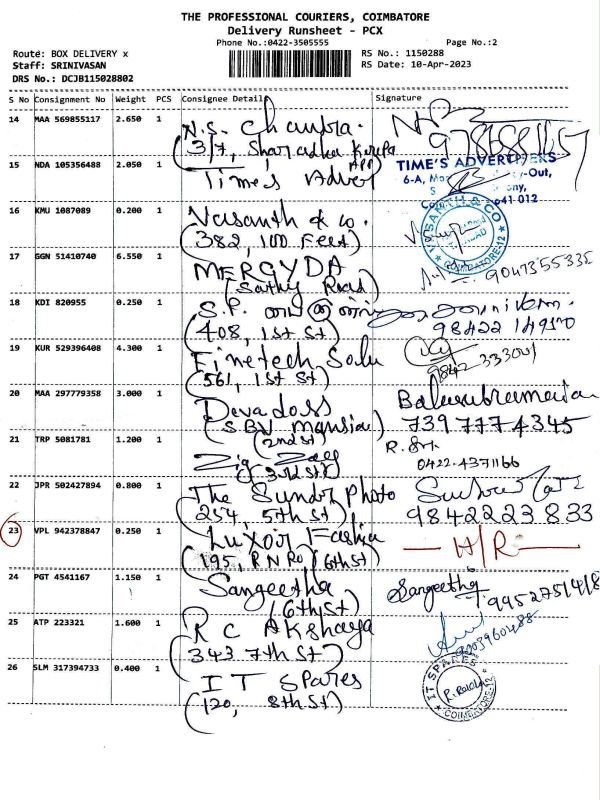 THE PROFESSIONAL COURIERS, COIMBATORE
Delivery Runsheet - PCX
Phone No.:0422-3505555 Page No.:2
Route: BOX DELIVERY x RS No.: 1150288
Staff: SRINIVASAN RS Date: 10-Apr-2023
DRS No.: DCJB115028802
S No Consignment No Weight PCS Consignee Detail Signature
14 MAA 569855117 2.650 1 N.S. Chandra.
(3/7, Sharadha Krupa
App)
15 NDA 105356488 2.050 1 Time's Advet TIME'S ADVERTISERS
641 012
16 KMU 1087089 0.200 1 Vasanth & Co. VASANTH & CO
(382, 100 Feet) COIMBATORE-12
17 GGN 51410740 6.550 1 MERGYDA 9047355335
(Sathy Road)
18 KDI 820955 0.250 1 S.P.
(408, 1st St) 98422 14950
19 KUR 529396408 4.300 1 Finetech Solu
(561, 1st St)
20 MAA 297779358 3.000 1 Devadoss
(SBV Mansion) 7397774345
(2nd St)
21 TRP 5081781 1.200 1 Zig Zag 0422-4371166
(3rd St)
22 JPR 502427894 0.800 1 The Sundr Photo
(254, 5th St) 9842223833
23 VPL 942378847 0.250 1 Luxoir Fashia — H/R —
(195, R N Ro) (6th St)
24 PGT 4541167 1.150 1 Sangeetha Sangeetha
(6th St)
25 ATP 223321 1.600 1 R C Akshaya 9003960488
(343 7th St)
26 SLM 317394733 0.400 1 I T Spares IT SPARES
(120, 8th St) COIMBATORE-12